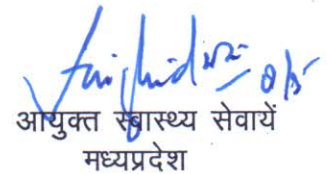 आयुक्त स्वास्थ्य सेवायें
मध्यप्रदेश